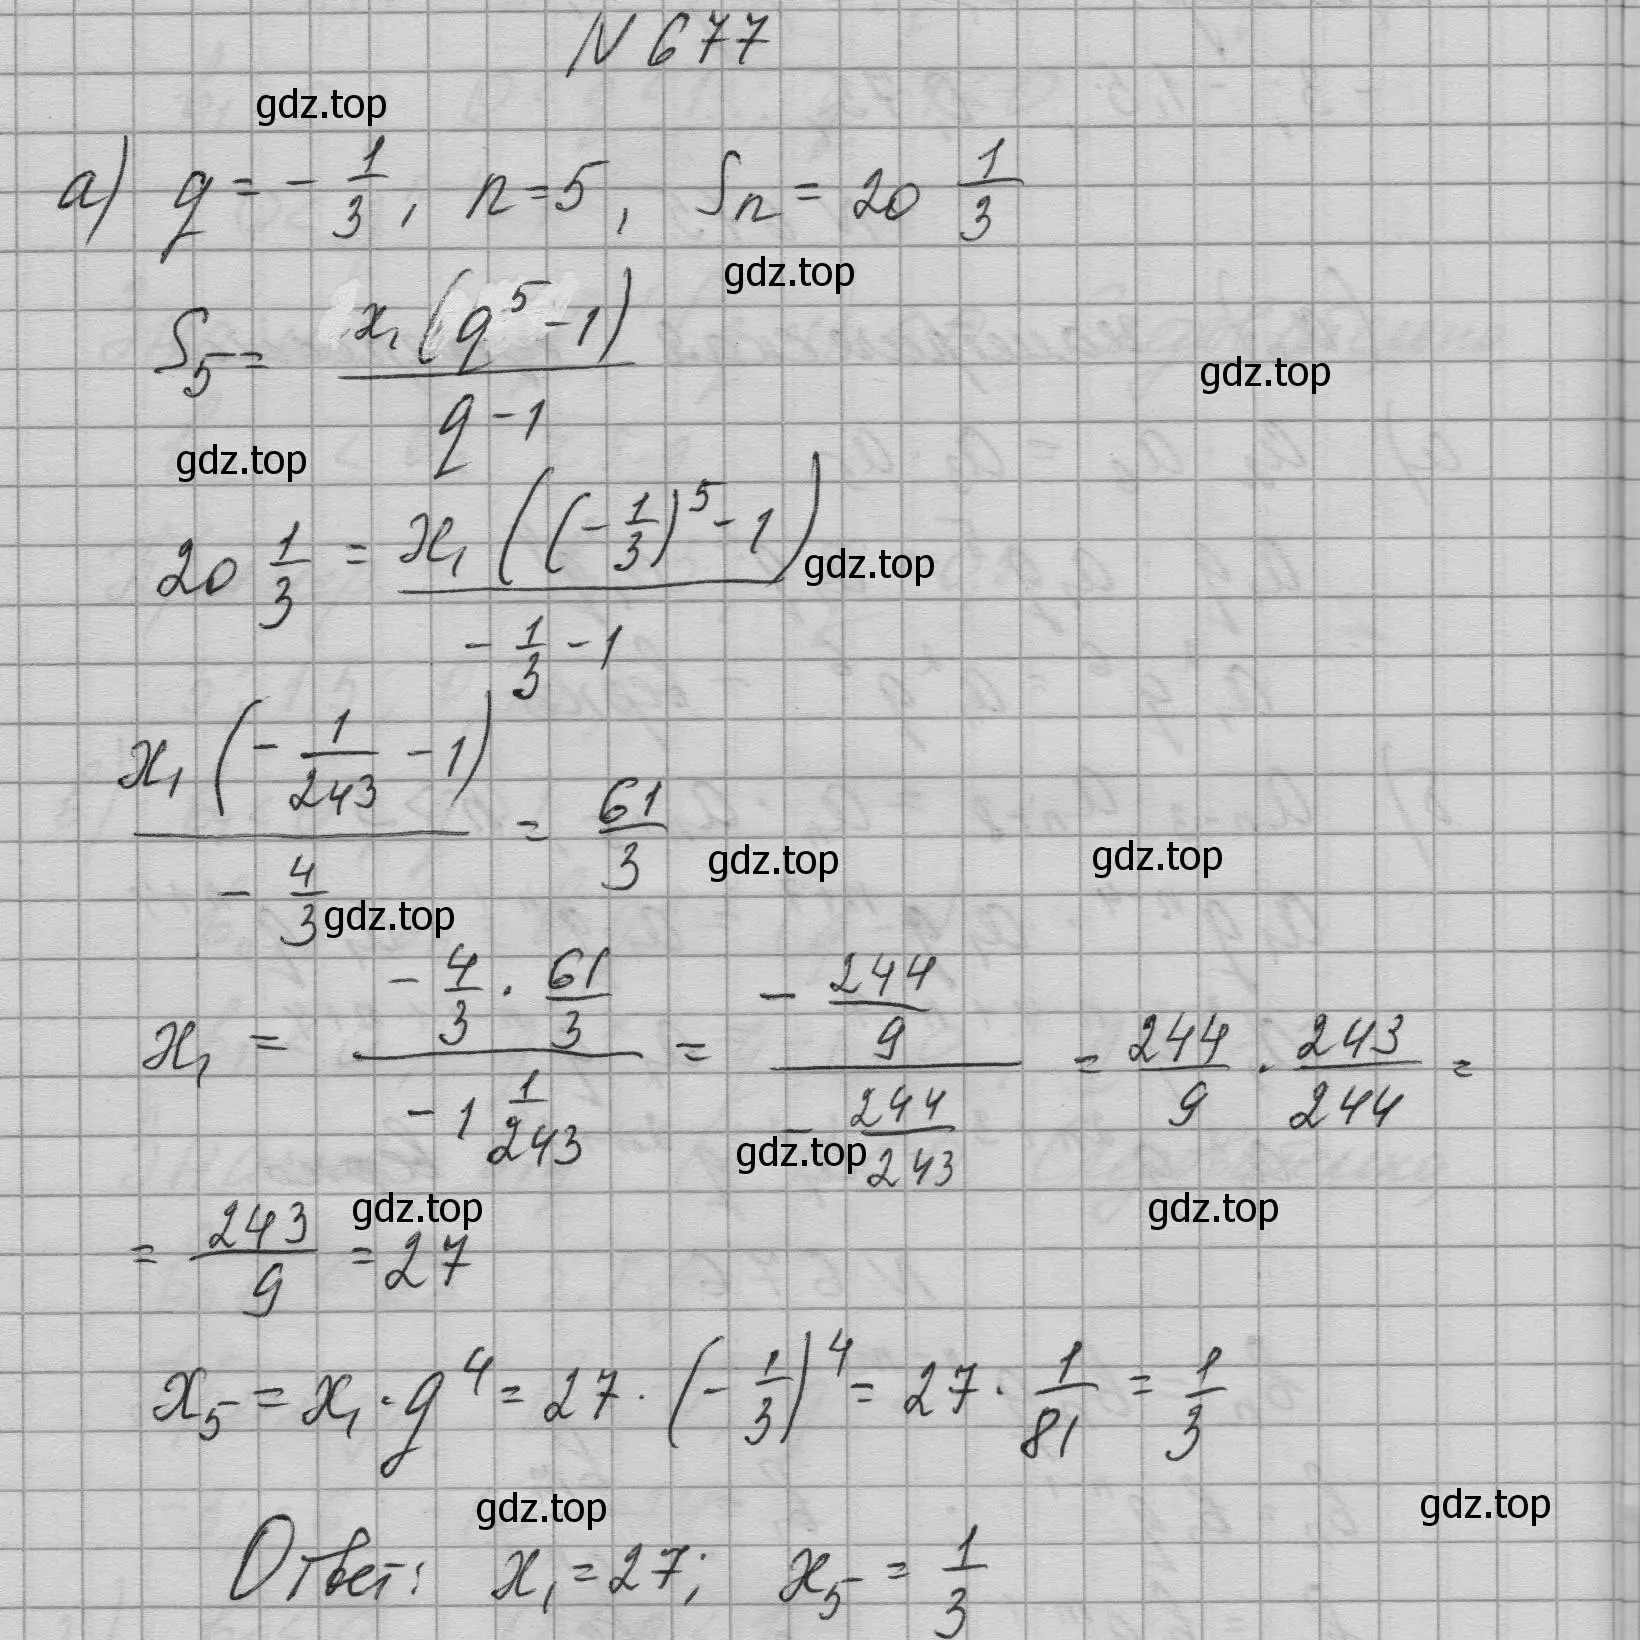 N 677
gdz.top
а) q = - 1/3, n = 5, Sn = 20 1/3
gdz.top
S₅ = x₁(q⁵ - 1) / (q - 1)
gdz.top
gdz.top
20 1/3 = x₁((-1/3)⁵ - 1) / (-1/3 - 1)
gdz.top
x₁(-1/243 - 1) / (-4/3) = 61/3
gdz.top gdz.top
gdz.top
x₁ = (-4/3 · 61/3) / (-1 1/243) = (-244/9) / (-244/243) = 244/9 · 243/244 =
gdz.top
gdz.top gdz.top
= 243/9 = 27
x₅ = x₁ · q⁴ = 27 · (-1/3)⁴ = 27 · 1/81 = 1/3
gdz.top gdz.top
Ответ: x₁ = 27; x₅ = 1/3